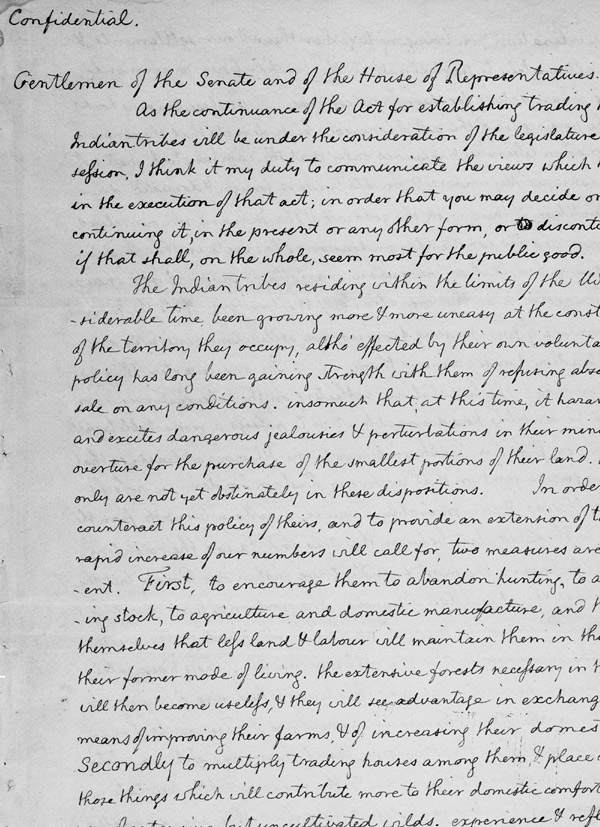 Confidential.
Gentlemen of the Senate and of the House of Representatives.
As the continuance of the Act for establishing trading
Indian tribes will be under the consideration of the legislature
session, I think it my duty to communicate the views which
in the execution of that act; in order that you may decide
continuing it, in the present or any other form, or to discont
if that shall, on the whole, seem most for the public good.
The Indian tribes residing within the limits of the
-siderable time, been growing more & more uneasy at the const
of the territory they occupy, altho' effected by their own volunta
policy has long been gaining strength with them of refusing abso
sale on any conditions. insomuch that, at this time, it hazar
and excites dangerous jealousies & perturbations in their min
overture for the purchase of the smallest portions of their land.
only are not yet obstinately in these dispositions. In order
counteract this policy of theirs, and to provide an extension of
rapid increase of our numbers will call for, two measures are
-ent. First, to encourage them to abandon hunting, to a
-ing stock, to agriculture and domestic manufacture, and
themselves that less land & labour will maintain them in th
their former mode of living. the extensive forests necessary in
will then become useless, & they will see advantage in exchang
means of improving their farms, & of increasing their domes
Secondly to multiply trading houses among them, & place
those things which will contribute more to their domestic comfor
but uncultivated wilds. experience & refl